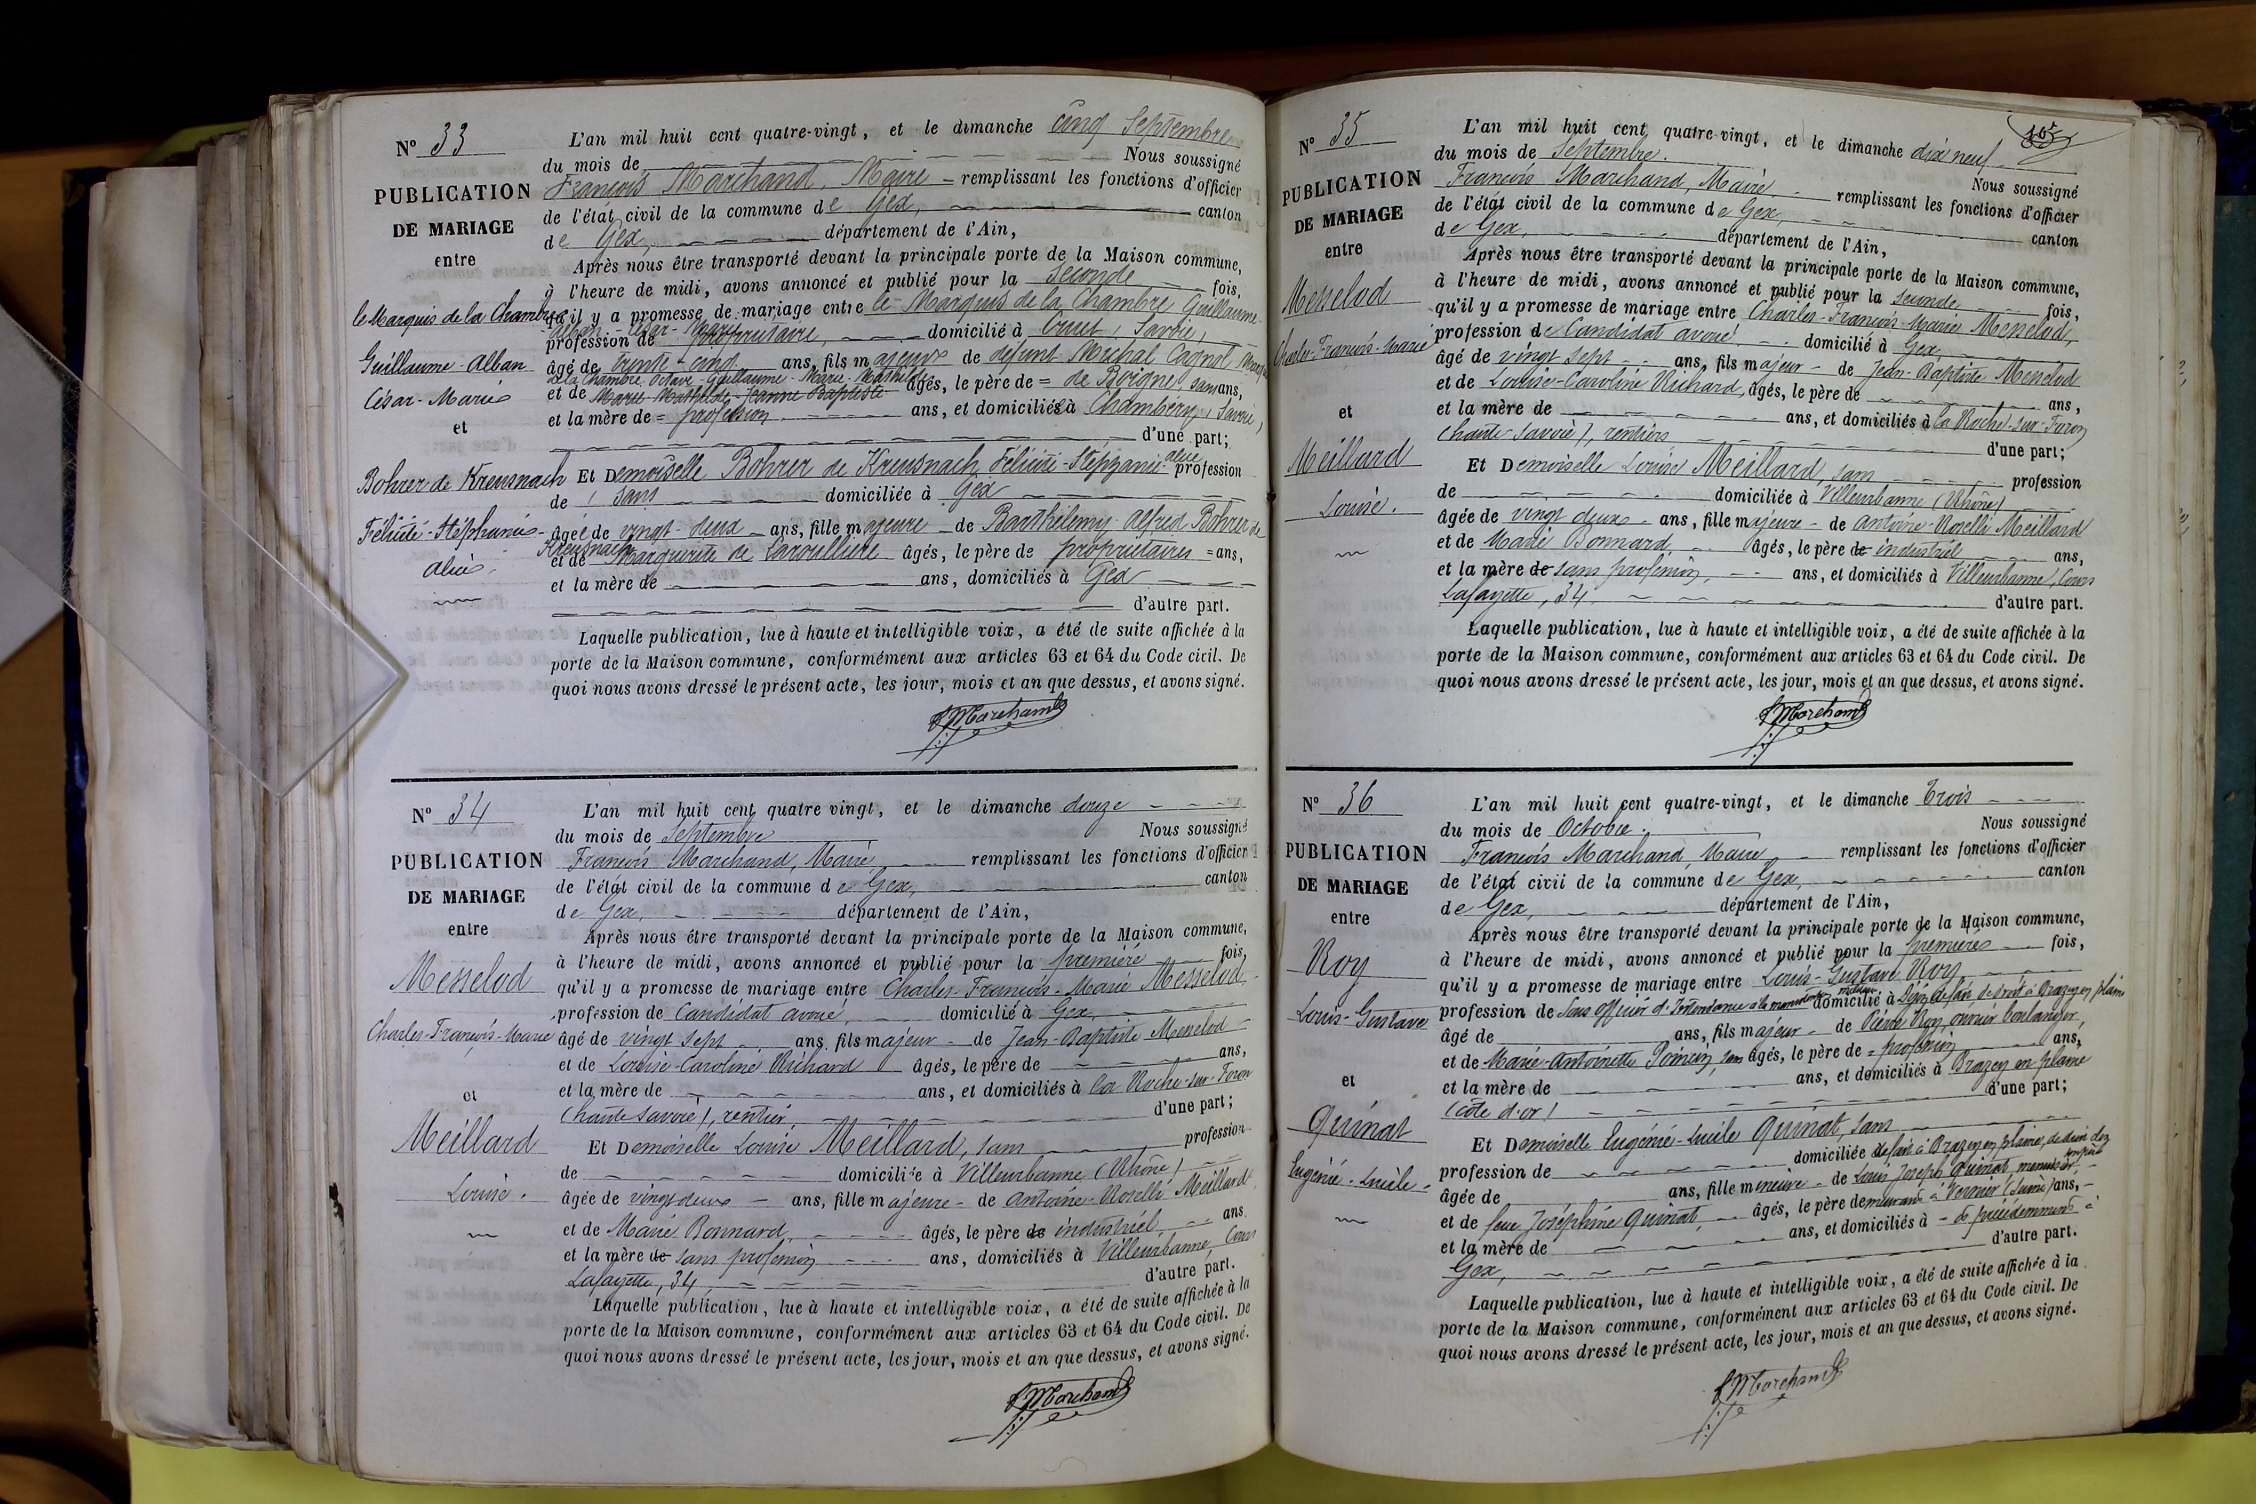 N° 33
PUBLICATION
DE MARIAGE
entre
le Marquis de la Chambre
Guillaume-Alban
César-Marie
et
Bohrer de Kreusnach
Félicité-Stéphanie-
alice.
L'an mil huit cent quatre-vingt, et le dimanche Cinq Septembre
du mois de Nous soussigné
François Marchand, Maire remplissant les fonctions d'officier
de l'état civil de la commune de Gex, canton
de Gex, département de l'Ain,
Après nous être transporté devant la principale porte de la Maison commune,
à l'heure de midi, avons annoncé et publié pour la seconde fois,
qu'il y a promesse de mariage entre le Marquis de la Chambre Guillaume
Alban-César-Marie
profession de propriétaire, domicilié à Cruet, Savoie,
âgé de trente-cinq ans, fils majeur de défunt Meshal Cagnol
de la Chambre, Octave-Guillaume-Marie-Mathilde
et de Marie-Mathilde-Jeanne Baptiste âgés, le père de = de Boigne, sans ans,
et la mère de = profession ans, et domiciliés à Chambéry, Savoie,
d'une part;
ET Demoiselle Bohrer de Kreusnach Félicité-Stéphanie-alice profession
de sans domiciliée à Gex
âgée de vingt-deux ans, fille majeure de Barthélemy-Alfred Bohrer de
Kreusnach
et de Marguerite de âgés, le père de propriétaires = ans,
et la mère de ans, domiciliés à Gex
d'autre part.
Laquelle publication, lue à haute et intelligible voix, a été de suite affichée à la
porte de la Maison commune, conformément aux articles 63 et 64 du Code civil. De
quoi nous avons dressé le présent acte, les jour, mois et an que dessus, et avons signé.
F Marchand
N° 34
PUBLICATION
DE MARIAGE
entre
Messelod
Charles-François-Marie
et
Meillard
Louise.
L'an mil huit cent quatre vingt, et le dimanche douze
du mois de Septembre Nous soussigné
François Marchand, Maire, remplissant les fonctions d'officier
de l'état civil de la commune de Gex, canton
de Gex, département de l'Ain,
Après nous être transporté devant la principale porte de la Maison commune,
à l'heure de midi, avons annoncé et publié pour la première fois,
qu'il y a promesse de mariage entre Charles-François-Marie Messelod
profession de Candidat avoué, domicilié à Gex,
âgé de vingt sept ans, fils majeur de Jean-Baptiste Messelod
et de Louise-Caroline Richard âgés, le père de ans,
et la mère de ans, et domiciliés à la Roche-sur-Foron
(haute savoie), rentier, d'une part;
ET Demoiselle Louise Meillard, sans profession
de domiciliée à Villeurbanne (Rhône)
âgée de vingt deux ans, fille majeure de Antoine-Roselli Meillard
et de Marie Bonnard, âgés, le père de industriel, ans
et la mère de sans profession ans, domiciliés à Villeurbanne, Cours
Lafayette, 34, d'autre part.
Laquelle publication, lue à haute et intelligible voix, a été de suite affichée à la
porte de la Maison commune, conformément aux articles 63 et 64 du Code civil. De
quoi nous avons dressé le présent acte, les jour, mois et an que dessus, et avons signé.
F Marchand
N° 35
PUBLICATION
DE MARIAGE
entre
Messelod
Charles-François-Marie
et
Meillard
Louise.
L'an mil huit cent quatre-vingt, et le dimanche dix neuf
du mois de Septembre. Nous soussigné
François Marchand, Maire remplissant les fonctions d'officier
de l'état civil de la commune de Gex, canton
de Gex, département de l'Ain,
Après nous être transporté devant la principale porte de la Maison commune,
à l'heure de midi, avons annoncé et publié pour la seconde fois,
qu'il y a promesse de mariage entre Charles-François-Marie Messelod,
profession de Candidat avoué. domicilié à Gex,
âgé de vingt sept ans, fils majeur de Jean-Baptiste Messelod
et de Louise-Caroline Richard, âgés, le père de ans,
et la mère de ans, et domiciliés à la Roche-sur-Foron
(haute-savoie), rentiers d'une part;
ET Demoiselle Louise Meillard, sans profession
de domiciliée à Villeurbanne (Rhône)
âgée de vingt deux ans, fille majeure de Antoine-Roselli Meillard
et de Marie Bonnard, âgés, le père de industriel ans,
et la mère de sans profession, ans, et domiciliés à Villeurbanne, Cours
Lafayette, 34 d'autre part.
Laquelle publication, lue à haute et intelligible voix, a été de suite affichée à la
porte de la Maison commune, conformément aux articles 63 et 64 du Code civil. De
quoi nous avons dressé le présent acte, les jour, mois et an que dessus, et avons signé.
F Marchand
N° 36
PUBLICATION
DE MARIAGE
entre
Roy
Louis-Gustave
et
Quinat
Eugénie-Lucile
L'an mil huit cent quatre-vingt, et le dimanche Trois
du mois de Octobre. Nous soussigné
François Marchand, Maire remplissant les fonctions d'officier
de l'état civil de la commune de Gex, canton
de Gex, département de l'Ain,
Après nous être transporté devant la principale porte de la Maison commune,
à l'heure de midi, avons annoncé et publié pour la première fois,
qu'il y a promesse de mariage entre Louis-Gustave Roy
profession de Sous officier d'Intendance domicilié à Dijon de fait, de droit à Brazey en plaine
âgé de ans, fils majeur de Pierre Roy, ouvrier boulanger,
et de Marie-Antoinette sans âgés, le père de = profession ans,
et la mère de ans, et domiciliés à Brazey en plaine
(côte d'or) d'une part;
ET Demoiselle Eugénie-Lucile Quinat, sans
profession de domiciliée de fait à Brazey en plaine, de droit chez son père
âgée de ans, fille mineure de Louis Joseph Quinat, menuisier,
et de feue Joséphine Quinat, âgés, le père demeurant à Vernier (Suisse) ans,
et la mère de ans, et domiciliés à précédemment à
Gex, d'autre part.
Laquelle publication, lue à haute et intelligible voix, a été de suite affichée à la
porte de la Maison commune, conformément aux articles 63 et 64 du Code civil. De
quoi nous avons dressé le présent acte, les jour, mois et an que dessus, et avons signé.
F Marchand